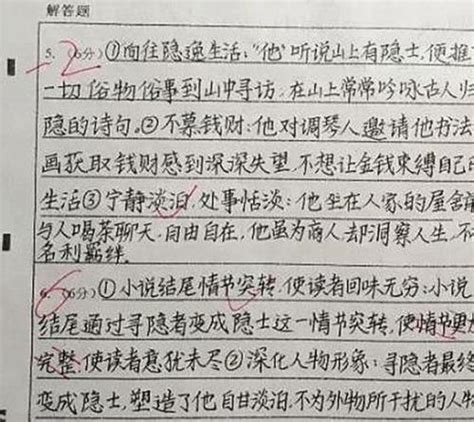 解答题
5. (6分) ①向往隐逸生活,“他”听说山上有隐士,便推
一切俗物俗事到山中寻访,在山上常常吟咏古人归
隐的诗句。②不慕钱财:他对调琴人邀请他书法
画获取钱财感到深深失望,不想让金钱束缚自己的
生活③宁静淡泊,处事恬淡:他坐在人家的屋舍
与人喝茶聊天,自由自在,他虽为商人却洞察人生,不
名利羁绊.
6. (6分) ①小说结尾情节突转,使读者回味无穷:小说
结尾通过寻隐者变成隐士这一情节突转,使情节更
完整,使读者意犹未尽②深化人物形象:寻隐者最终
变成隐士,塑造了他自甘淡泊,不为外物所干扰的人物